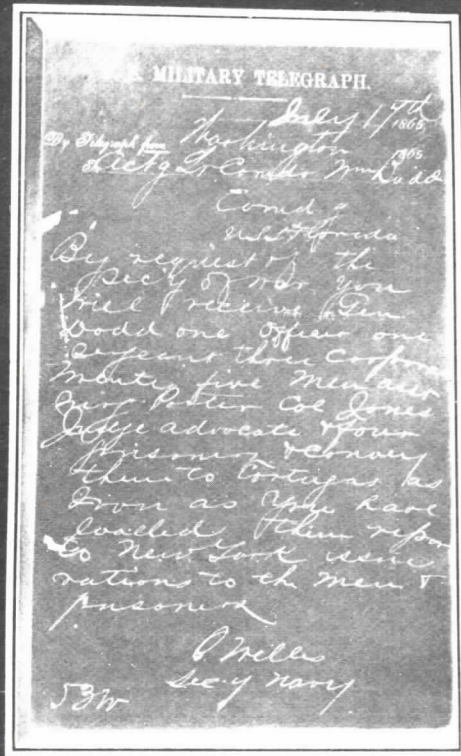 U.S. MILITARY TELEGRAPH.
July 17th 1865
By Telegraph from Washington 1865
To Actg Lt Comdr Wm Budd
Comd'g
U.S.S. Florida
By request of the
Sec'y of war you
will receive Gen
Dodd one officer one
sergeant three corporals
twenty five men
Surg Porter Col Jones
Judge advocate & four
prisoners & convey
them to Tortugas as
soon as you have
coaled, then report
to New York issue
rations to the men &
prisoners
G Welles
Sec-y Navy
53W